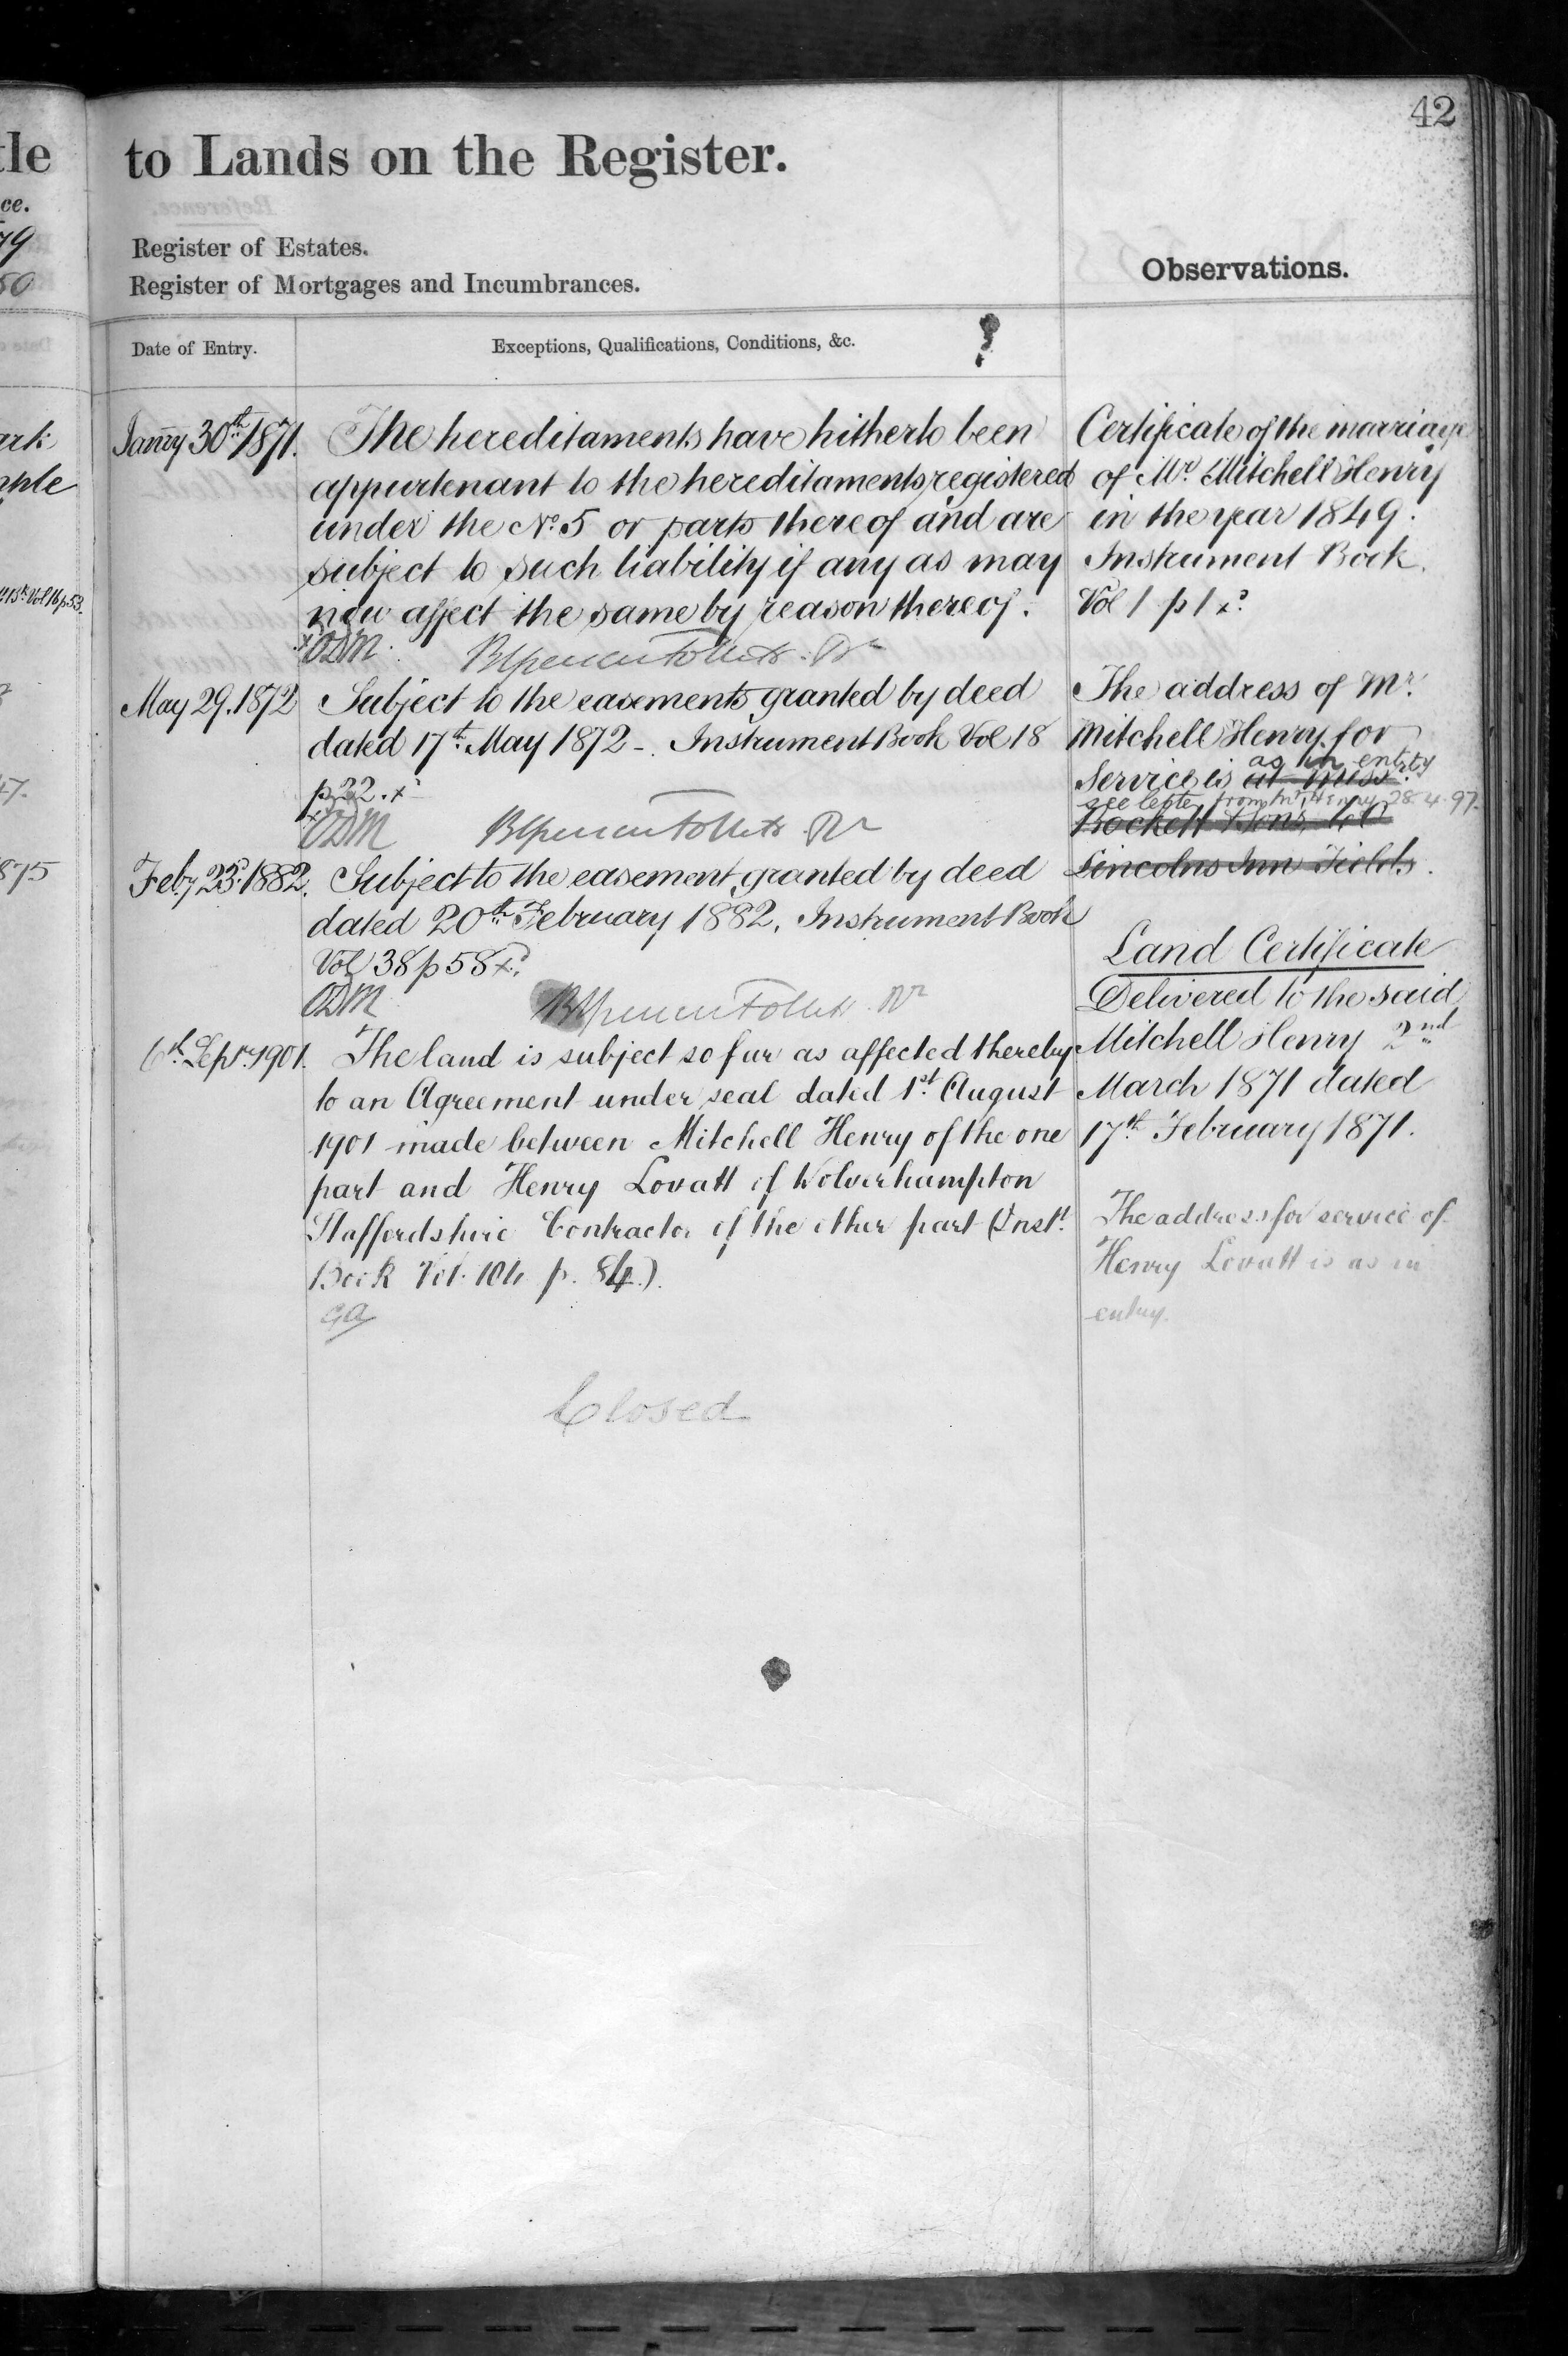 42
to Lands on the Register.
Register of Estates.
Register of Mortgages and Incumbrances.
Observations.
Date of Entry.
Exceptions, Qualifications, Conditions, &c.
Janry 30th 1871.
The hereditaments have hitherto been
appurtenant to the hereditaments registered
under the No. 5 or parts thereof and are
subject to such liability if any as may
now affect the same by reason thereof.
ODM
May 29. 1872
Subject to the easements granted by deed
dated 17th May 1872 - Instrument Book Vol 18
p 22.
ODM
Feby 23. 1882.
Subject to the easement granted by deed
dated 20th February 1882. Instrument Book
Vol 38 p 58
ODM
6th Septr 1901.
The land is subject so far as affected thereby
to an Agreement under seal dated 1st August
1901 made between Mitchell Henry of the one
part and Henry Lovatt of Wolverhampton
Staffordshire Contractor of the other part (Inst.
Book Vol. 104 p. 84.)
GA
Closed
Certificate of the marriage
of Mr. Mitchell Henry
in the year 1849.
Instrument Book.
Vol 1 p 1
The address of Mr.
Mitchell Henry for
as in entry
Service is at Messrs.
see letter from Mr. Henry 28.4.97.
Bockett & Sons
Lincolns Inn Fields.
Land Certificate
Delivered to the said
Mitchell Henry 2nd
March 1871 dated
17th February 1871.
The address for service of
Henry Lovatt is as in
entry.